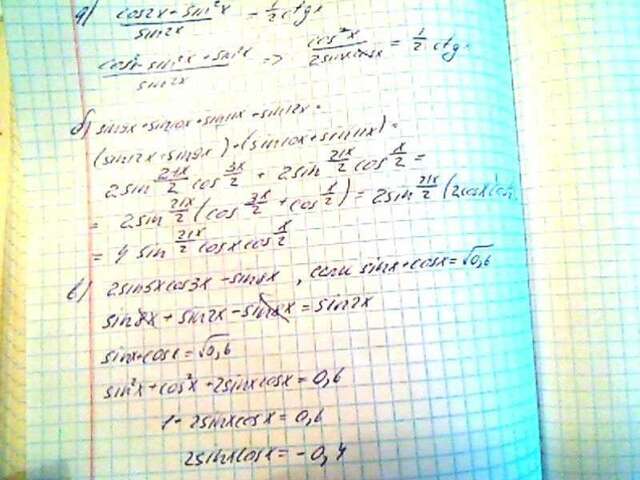 а) (cos2x + sin²x)/sin2x = 1/2 ctgx
(cos²x - sin²x + sin²x)/sin2x => cos²x/(2sinxcosx) = 1/2 ctgx
б) sin9x + sin10x + sin11x + sin12x =
(sin12x + sin9x) + (sin10x + sin11x) =
2sin 21x/2 cos 3x/2 + 2sin 21x/2 cos x/2 =
= 2sin 21x/2 (cos 3x/2 + cos x/2) = 2sin 21x/2 (2cosx cos
= 4 sin 21x/2 cosx cos x/2
в) 2sin5xcos3x - sin8x, если sinx + cosx = √0,6
sin8x + sin2x - sin8x = sin2x
sinx + cosx = √0,6
sin²x + cos²x + 2sinxcosx = 0,6
1 + 2sinxcosx = 0,6
2sinxcosx = -0,4